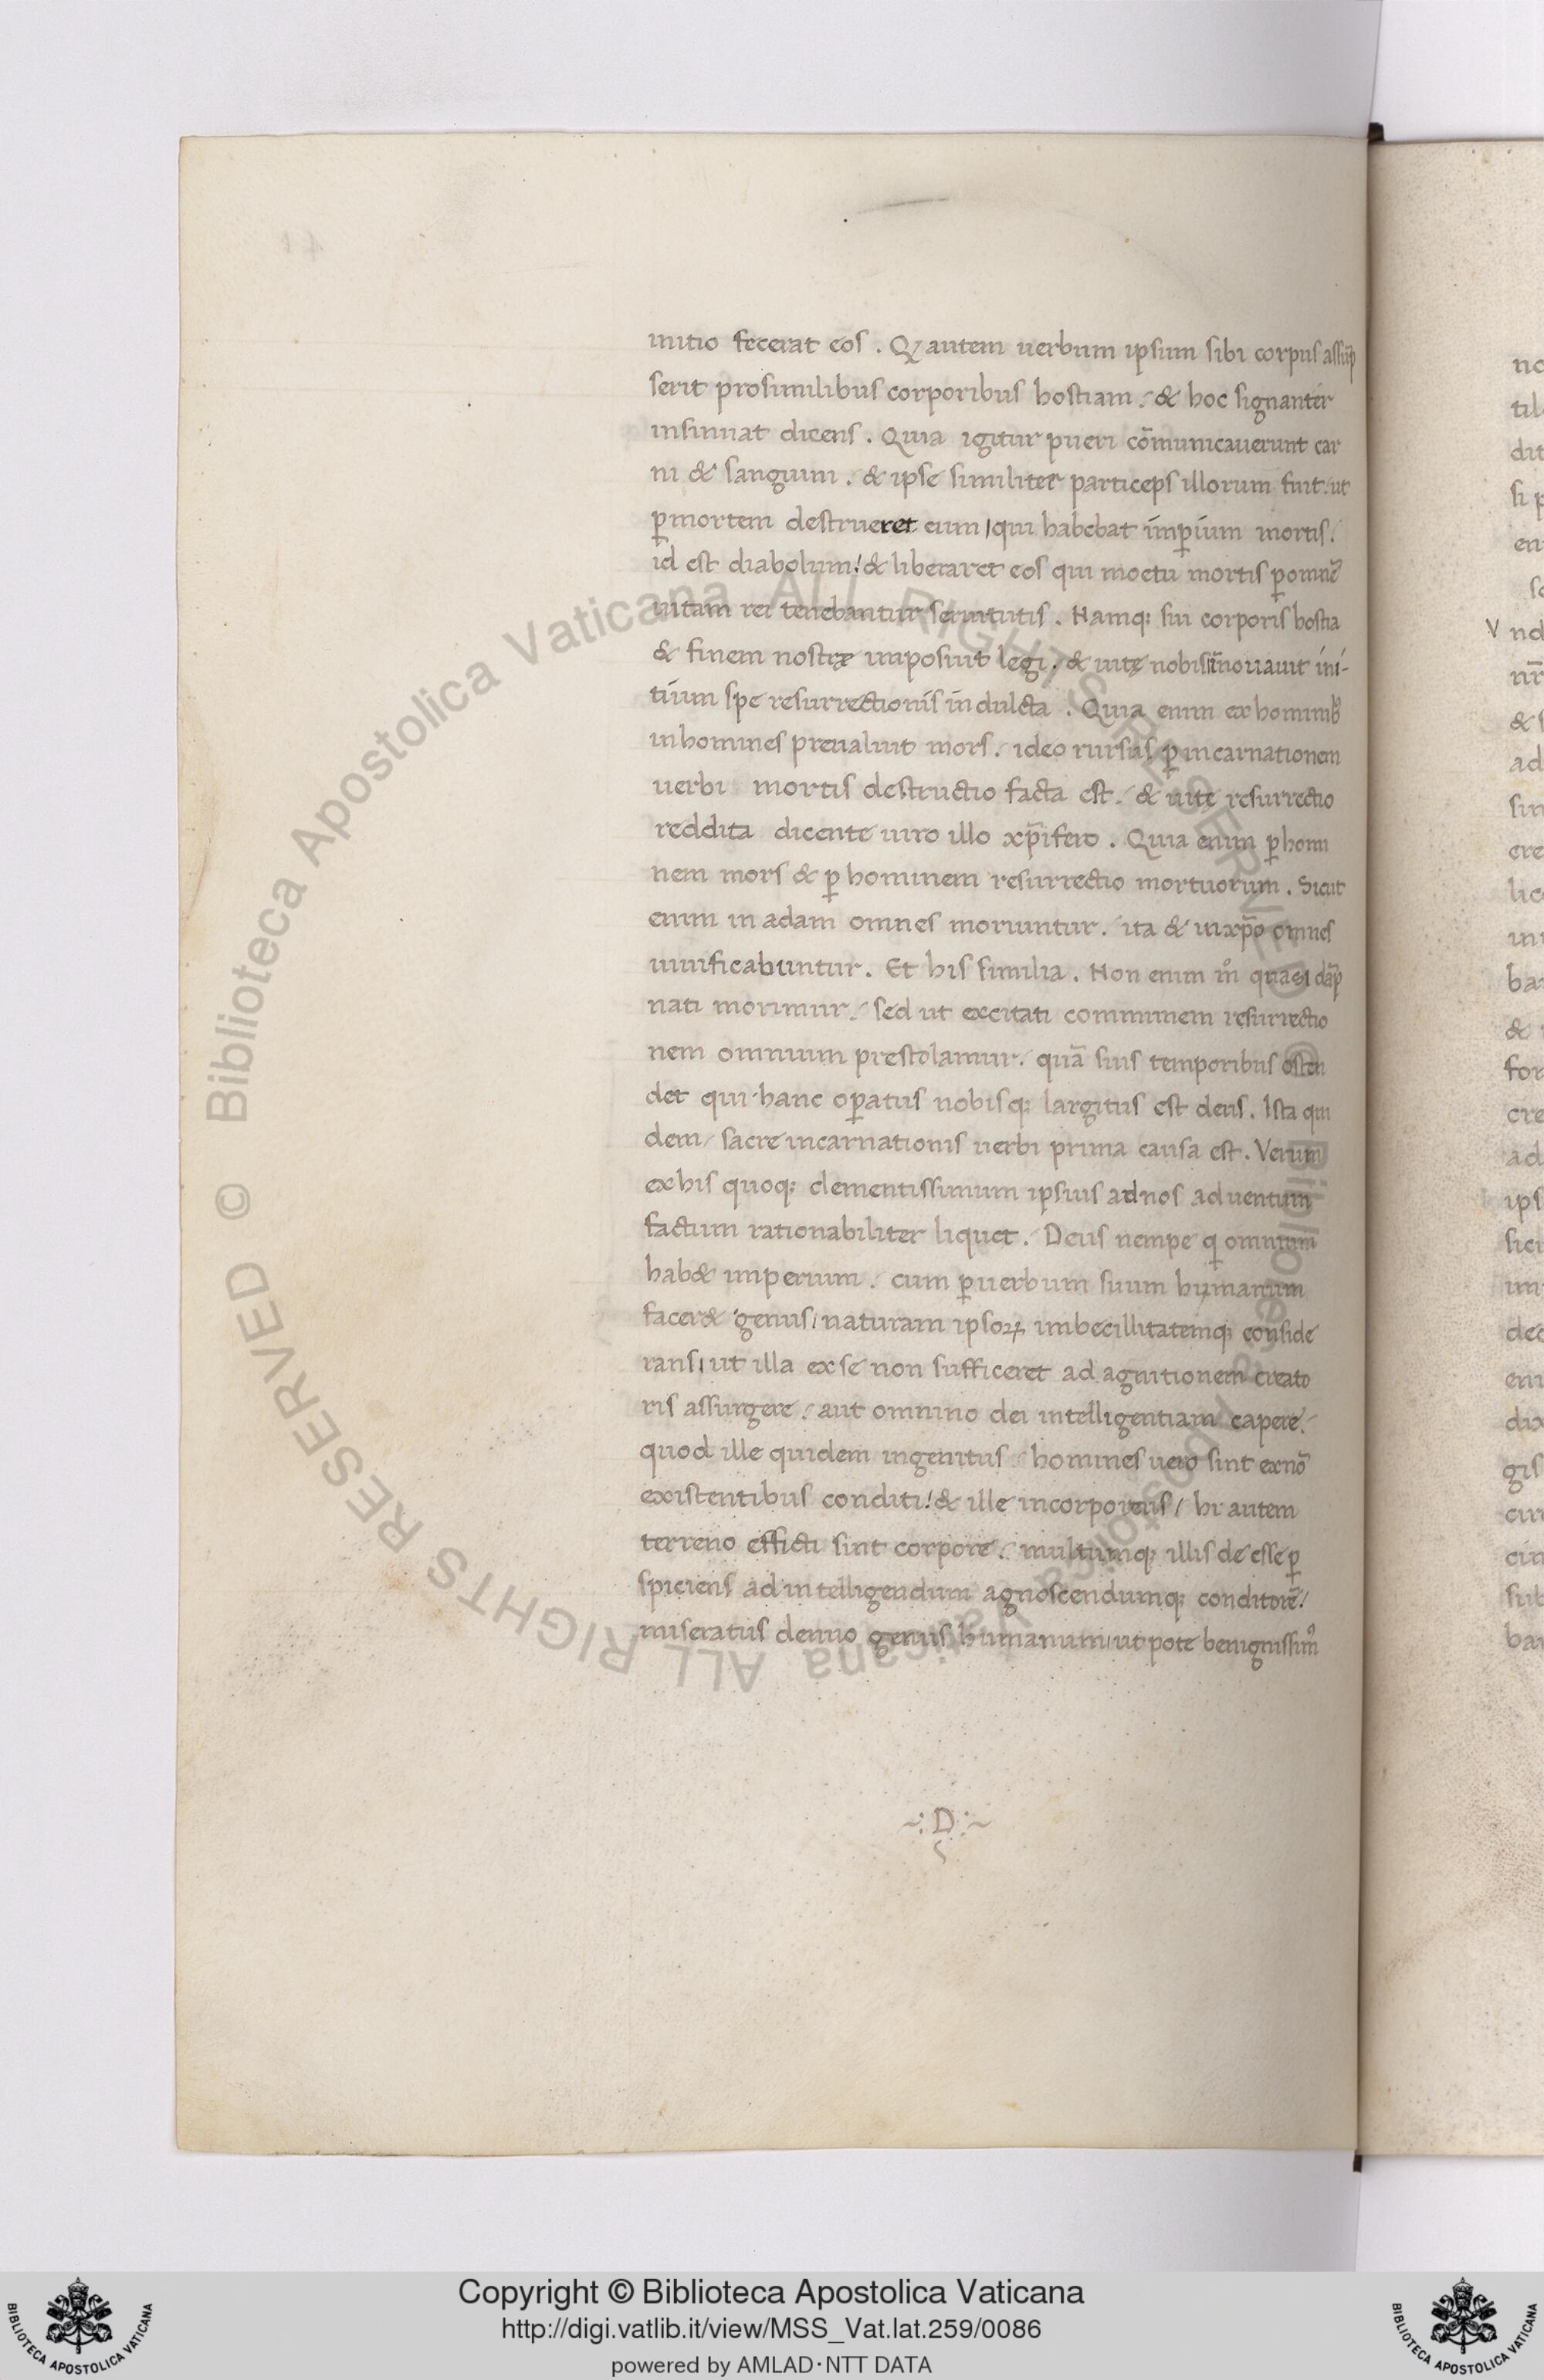 initio fecerat eos . Q autem uerbum ipsum sibi corpus assūp
serit prosimilibus corporibus hostiam . & hoc signanter
insinuat dicens . Quia igitur pueri cōmunicauerunt car
ni & sanguini . & ipse similiter particeps illorum fuit . ut
p̱mortem destrueret eum / qui habebat imp̱ium mortis .
id est diabolum ! & liberaret eos qui moetu mortis p̱omnē
uitam rei tenebantur seruitutis . Namq; sui corporis hostia
& finem nostrę imposuit legi . & uitę nobis innouauit ini-
tium spe resurrectionis indulta . Quia enim ex hominib;
inhomines preualuit mors . ideo rursus p̱incarnationem
uerbi mortis destructio facta est . & uitę resurrectio
reddita dicente uiro illo xp̄ifero . Quia enim p̱homi
nem mors & p̱ hominem resurrectio mortuorum . Sicut
enim in adam omnes moriuntur . ita & inxp̄o omnes
uiuificabuntur . Et his similia . Non enim m̊ quasi dāp
nati morimur . sed ut excitati communem resurrectio
nem omnium prestolamur . quā suis temporibus osten
det qui hanc op̱atus nobisq; largitus est deus . Ista qui
dem / sacre incarnationis uerbi prima causa est . Verum
exhis quoq; clementissimum ipsius adnos aduentum
factum rationabiliter liquet . Deus nempe q omnium
hab& imperium . cum p̱uerbum suum humanum
facer& genus / naturam ipsoꝝ imbecillitatemq; conside
rans / ut illa exse non sufficeret ad agnitionem creato
ris assurgere . aut omnino dei intelligentiam capere .
quod ille quidem ingenitus . homines uero sint exnō
existentibus conditi ! & ille incorporeus / hi autem
terreno effecti sint corpore . multumq; illis de esse p̱
spiciens ad intelligendum agnoscendumq; conditorē !
miseratus denuo genus humanum / ut pote benignissim᾿
~:D:~
© Biblioteca Apostolica Vaticana ALL RIGHTS RESERVED © Biblioteca Apostolica Vaticana ALL RIGHTS RESERVED
Copyright © Biblioteca Apostolica Vaticana
http://digi.vatlib.it/view/MSS_Vat.lat.259/0086
powered by AMLAD·NTT DATA
BIBLIOTECA APOSTOLICA VATICANA
BIBLIOTECA APOSTOLICA VATICANA